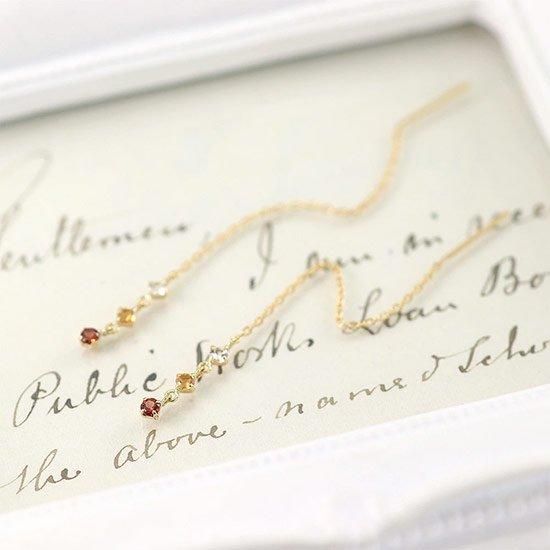 Gentlemen, I am in rece
Public Works Loan Bo
the above-named Schu